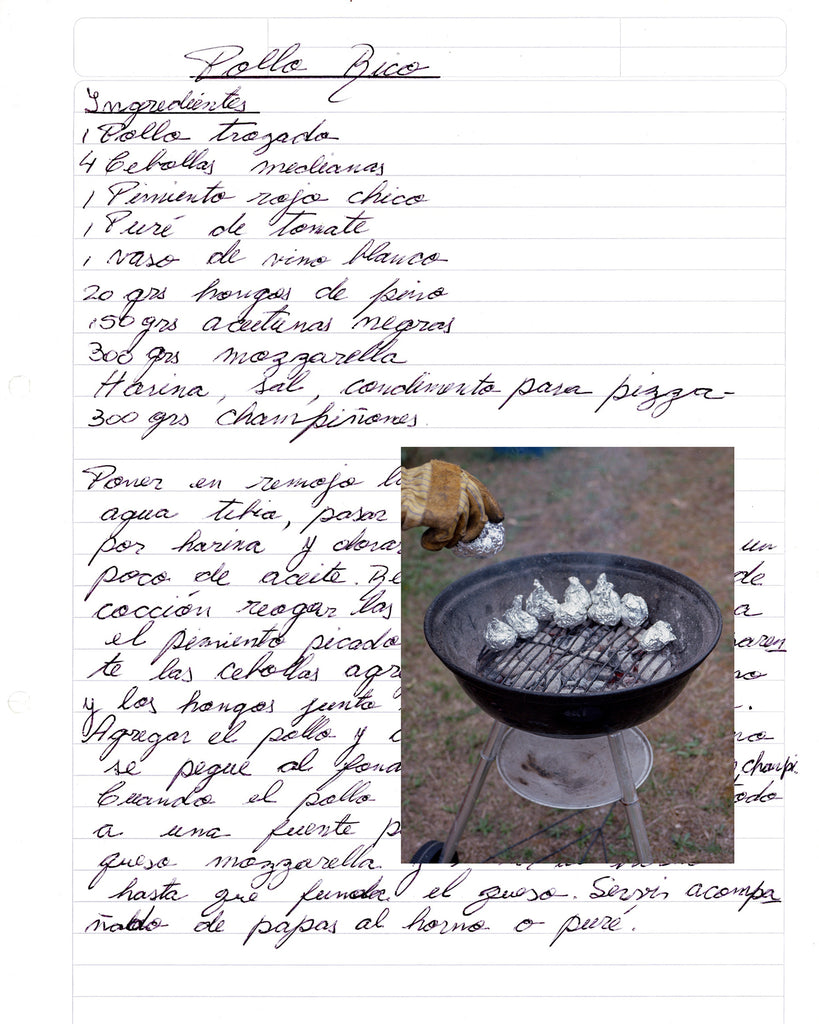 Pollo Rico
Ingredientes
1 Pollo trozado
4 Cebollas medianas
1 Pimiento rojo chico
1 Puré de tomate
1 vaso de vino blanco
20 grs hongos de pino
150 grs aceitunas negras
300 grs mozzarella
Harina, sal, condimento para pizza-
300 grs champiñones.
Poner en remojo
agua tibia, pasar
por harina y dorar un
poco de aceite. de
cocción reogar las a
el pimiento picado paren
te las cebollas agre no
y los hongos junto .
Agregar el pollo y
se pegue al fond champi
Cuando el pollo todo
a una fuente p
queso mozzarella
hasta que funda el queso. Servir acompa
ñado de papas al horno o puré.